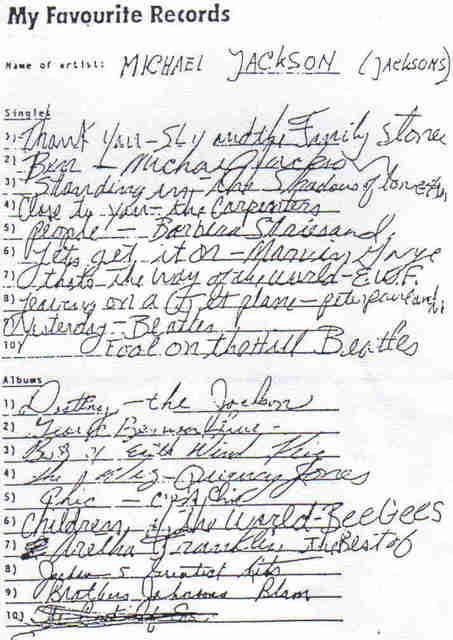 My Favourite Records
Name of artist: MICHAEL JACKSON (JACKSONS)
Singles
1) Thank You - Sly and the Family Stone
2) Ben - Michael Jackson
3) Standing in the Shadows of love
4) Close to you - the Carpenters
5) People - Barbra Streisand
6) Lets get it on - Marvin Gaye
7) thats the way of the world - E.W.F.
8) leaving on a jet plane - peter paul and
Yesterday - Beatles
10) Fool on the Hill Beatles
Albums
1) Destiny - the Jackson
2) George Benson
3) Earth Wind Fire
4) the Wiz - Quincy Jones
5) Chic - C'est Chic
6) Children of the World - BeeGees
7) Aretha Franklin The Best of
8) Jackson 5 Greatest hits
9) Brothers Johnsons Blam
10)